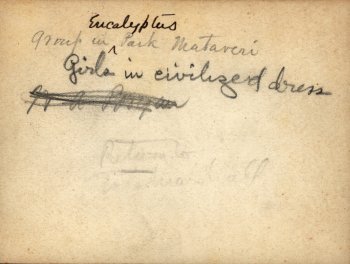 Eucalyptus
Group in Park Mataveri
Girls in civilized dress
Return to